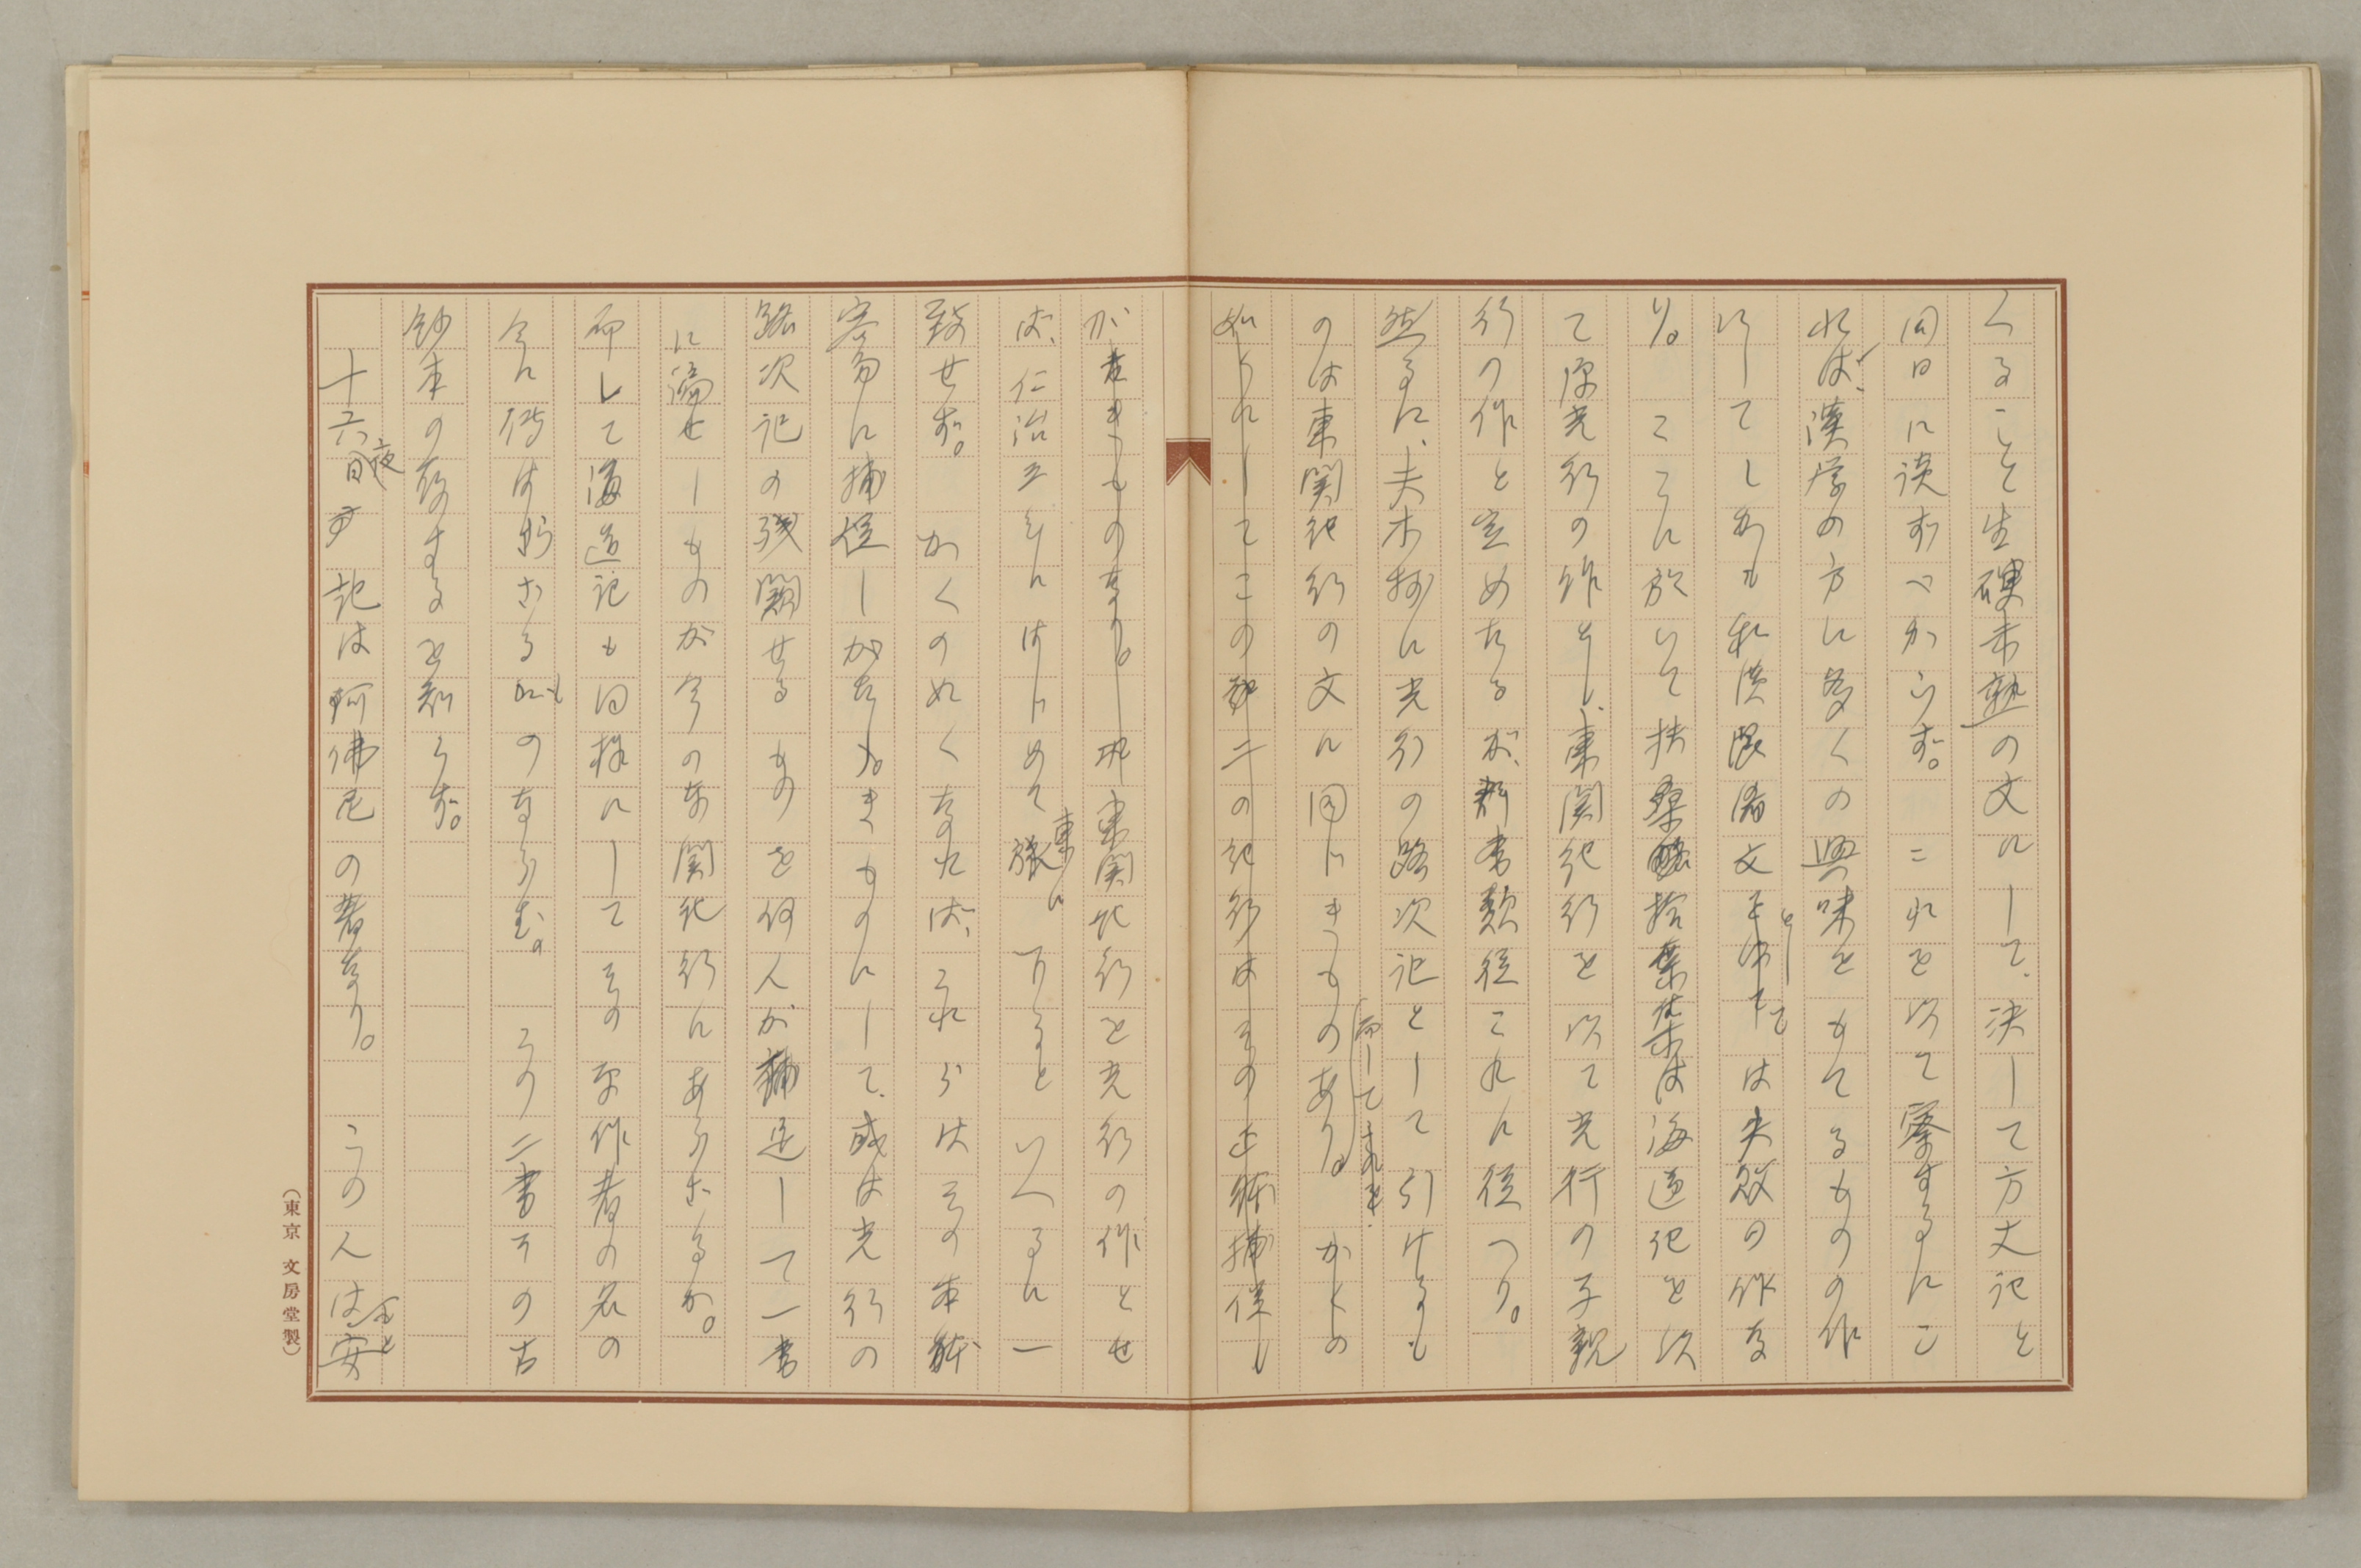 くること生硬未熟の文にして、決して方丈記と
同日に談ずべからず。これを以て察するにこ
れは、漢学の方に多くの興味をもてるものの作
にしてしかも和漢混淆文としては失敗の作な
り。こゝに於いて扶桑拾葉集は海道記を以
て源光行の作とし、東関紀行を以て光行の子親
行の作と定めたるが、群書類従これに従へり。
然るに、夫木抄に光行の路次記として引けるも
のは東関紀行の文に同じきものあり。かくの
而してそれを、
如くにしてこの二の紀行はその正体捕捉し
がたきものなり。東関紀行を光行の作とせ
ば、仁治三年にはじめて東に下るといへるに一
致せず。かくのぬくなれば、これらはその本体
容易に捕捉しがたきものにして、或は光行の
路次記の残闕せるものを何人が補足して一書
に編せしものが今の東関紀行にあらざるか。
而して海道記も同様にしてその原作者の名の
今に伝はらざるものならむ。この二書の古
鈔本の存するを知らず。
十六夜日記は阿佛尼の著なり。この人はもと安
(東京 文房堂製)